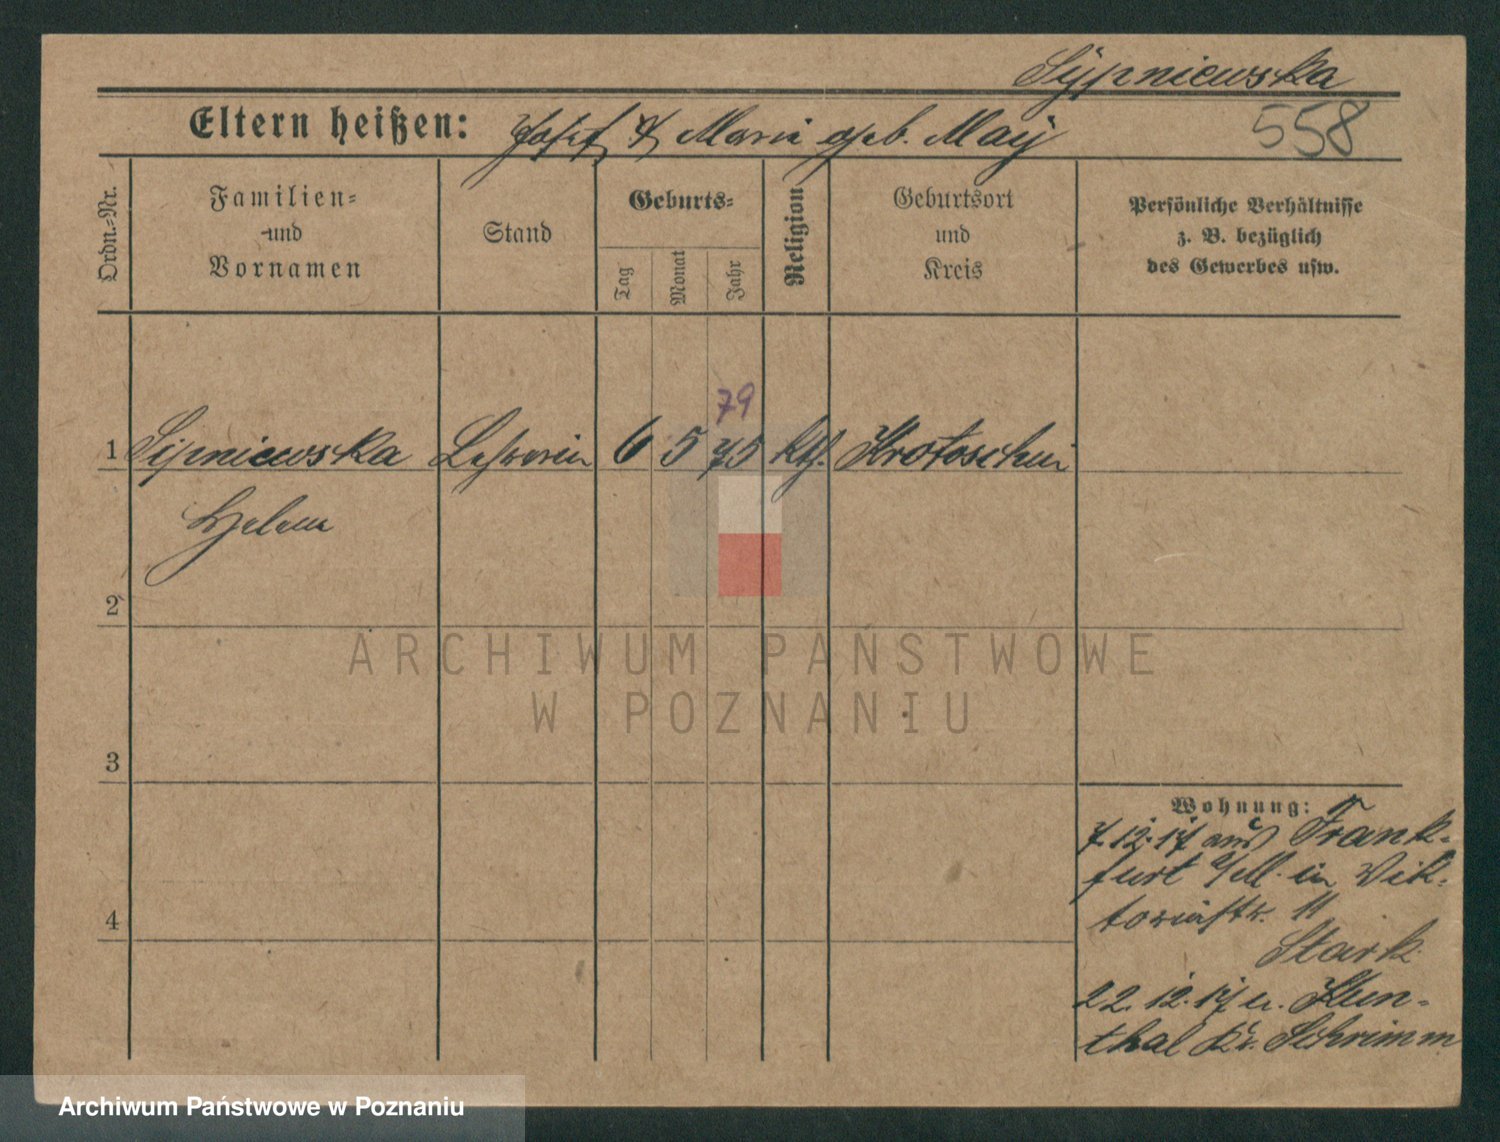 Sypniewska
558
Eltern heißen: Josef & Marie geb. May
Ordn.-Nr.
Familien-
und
Vornamen
Stand
Geburts-
Tag
Monat
Jahr
Religion
Geburtsort
und
Kreis
Persönliche Verhältnisse
z. B. bezüglich
des Gewerbes usw.
79
1 Sypniewska Lehrerin 6 5 75 kth. Krotoschin
Helene
2
3
4
ARCHIWUM PAŃSTWOWE
W POZNANIU
Wohnung:
7.12.17 aus Frank-
furt a/M. in Vik-
toriastr. 11
Stark
22.12.17 n.
thal Kr. Schrimm
Archiwum Państwowe w Poznaniu